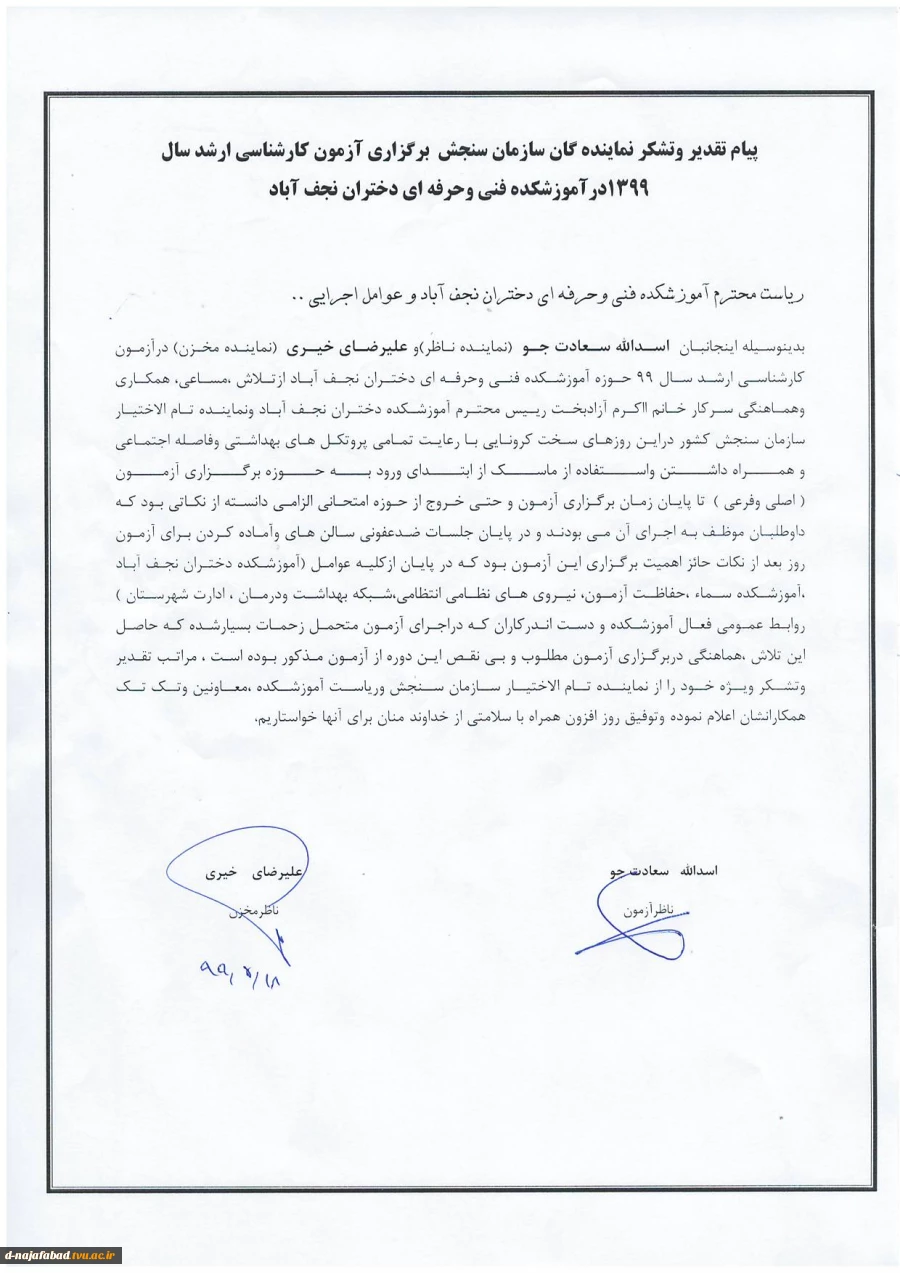 پیام تقدیر وتشکر نماینده گان سازمان سنجش برگزاری آزمون کارشناسی ارشد سال
۱۳۹۹درآموزشکده فنی وحرفه ای دختران نجف آباد
ریاست محترم آموزشکده فنی وحرفه ای دختران نجف آباد و عوامل اجرایی ..
بدینوسیله اینجانبان اسدالله سعادت جو (نماینده ناظر)و علیرضای خیری (نماینده مخزن) درآزمون
کارشناسی ارشد سال ۹۹ حوزه آموزشکده فنی وحرفه ای دختران نجف آباد ازتلاش ،مساعی، همکاری
وهماهنگی سرکار خانم ااکرم آزادبخت رییس محترم آموزشکده دختران نجف آباد ونماینده تام الاختیار
سازمان سنجش کشور دراین روزهای سخت کرونایی با رعایت تمامی پروتکل های بهداشتی وفاصله اجتماعی
و همراه داشتن واستفاده از ماسک از ابتدای ورود به حوزه برگزاری آزمون
( اصلی وفرعی ) تا پایان زمان برگزاری آزمون و حتی خروج از حوزه امتحانی الزامی دانسته از نکاتی بود که
داوطلبان موظف به اجرای آن می بودند و در پایان جلسات ضدعفونی سالن های وآماده کردن برای آزمون
روز بعد از نکات حائز اهمیت برگزاری این آزمون بود که در پایان ازکلیه عوامل (آموزشکده دختران نجف آباد
،آموزشکده سماء ،حفاظت آزمون، نیروی های نظامی انتظامی،شبکه بهداشت ودرمان ، ادارت شهرستان )
روابط عمومی فعال آموزشکده و دست اندرکاران که دراجرای آزمون متحمل زحمات بسیارشده که حاصل
این تلاش ،هماهنگی دربرگزاری آزمون مطلوب و بی نقص این دوره از آزمون مذکور بوده است ، مراتب تقدیر
وتشکر ویژه خود را از نماینده تام الاختیار سازمان سنجش وریاست آموزشکده ،معاونین وتک تک
همکارانشان اعلام نموده وتوفیق روز افزون همراه با سلامتی از خداوند منان برای آنها خواستاریم.
اسدالله سعادت جو
علیرضای خیری
ناظرآزمون
ناظرمخزن
d-najafabad.tvu.ac.ir